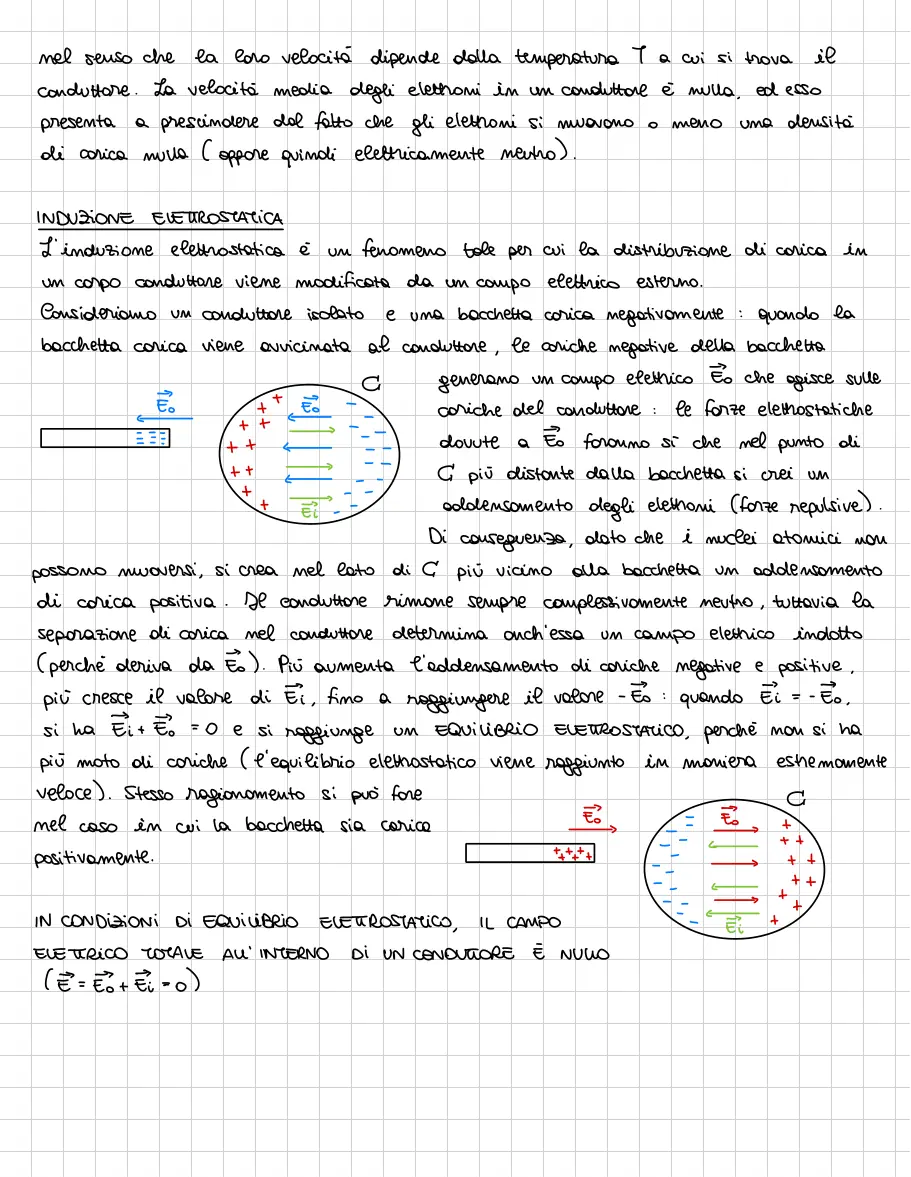 nel senso che la loro velocità dipende dalla temperatura T a cui si trova il
conduttore. La velocità media degli elettroni in un conduttore è nulla, ed esso
presenta a prescindere dal fatto che gli elettroni si muovono o meno una densità
di carica nulla (appare quindi elettricamente neutro).
INDUZIONE ELETTROSTATICA
L'induzione elettrostatica è un fenomeno tale per cui la distribuzione di carica in
un corpo conduttore viene modificata da un campo elettrico esterno.
Consideriamo un conduttore isolato e una bacchetta carica negativamente : quando la
bacchetta carica viene avvicinata al conduttore, le cariche negative della bacchetta
generano un campo elettrico E₀ che agisce sulle
cariche del conduttore : le forze elettrostatiche
dovute a E₀ faranno sì che nel punto di
C più distante dalla bacchetta si crei un
addensamento degli elettroni (forze repulsive).
Di conseguenza, dato che i nuclei atomici non
C
E₀
E₀
Ei
possono muoversi, si crea nel lato di C più vicino alla bacchetta un addensamento
di carica positiva. Il conduttore rimane sempre complessivamente neutro, tuttavia la
separazione di carica nel conduttore determina anch'essa un campo elettrico indotto
(perché deriva da E₀). Più aumenta l'addensamento di cariche negative e positive,
più cresce il valore di Ei, fino a raggiungere il valore -E₀ : quando Ei = -E₀,
si ha Ei + E₀ = 0 e si raggiunge un EQUILIBRIO ELETTROSTATICO, perché non si ha
più moto di cariche (l'equilibrio elettrostatico viene raggiunto in maniera estremamente
veloce). Stesso ragionamento si può fare
nel caso in cui la bacchetta sia carica
positivamente.
C
E₀
E₀
Ei
IN CONDIZIONI DI EQUILIBRIO ELETTROSTATICO, IL CAMPO
ELETTRICO TOTALE ALL'INTERNO DI UN CONDUTTORE È NULLO
(E = E₀ + Ei = 0)